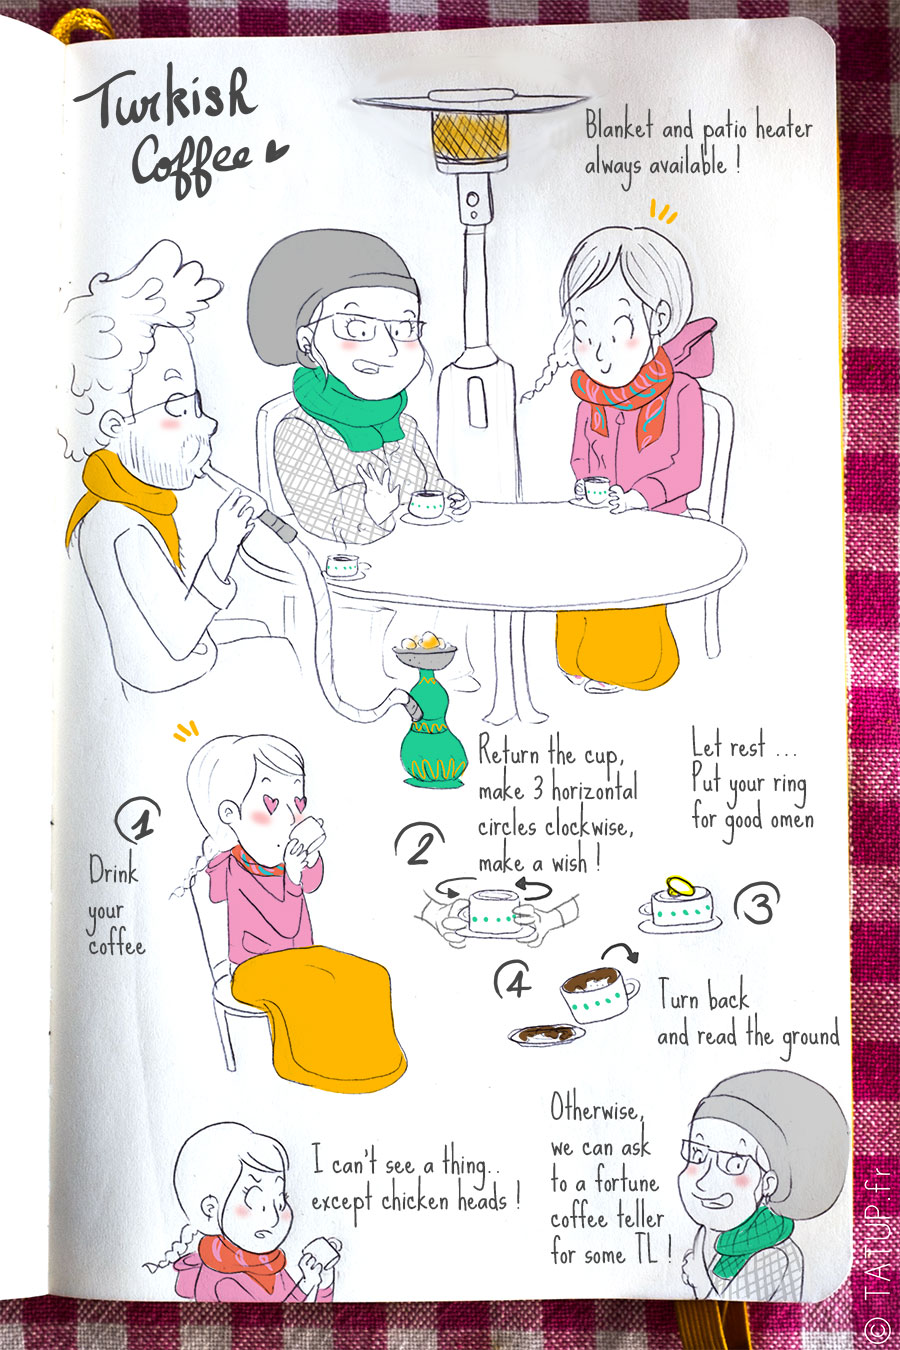 Turkish
Coffee
Blanket and patio heater
always available !
1
Drink
your
coffee
Return the cup,
make 3 horizontal
circles clockwise,
make a wish !
2
Let rest ...
Put your ring
for good omen
3
4
Turn back
and read the ground
I can't see a thing..
except chicken heads !
Otherwise,
we can ask
to a fortune
coffee teller
for some TL !
© TATUP.fr